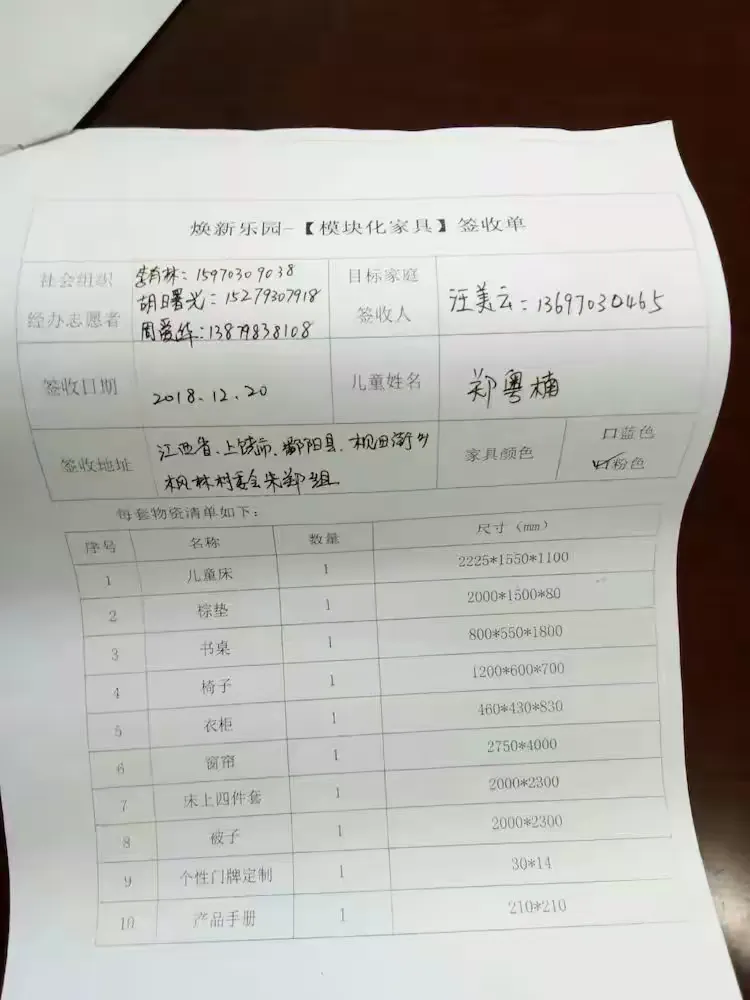 焕新乐园-【模块化家具】签收单
社会组织
经办志愿者
李有林：15970309038
胡日曙光：15279307918
周爱华：13879838108
目标家庭
签收人
汪美云：13697030465
签收日期
2018.12.20
儿童姓名
郑粤楠
签收地址
江西省、上饶市、鄱阳县、枧田街乡
枫林村委会朱郑组
家具颜色
口蓝色
粉色
每套物资清单如下：
序号 名称 数量 尺寸（mm）
1 儿童床 1 2225*1550*1100
2 棕垫 1 2000*1500*80
3 书桌 1 800*550*1800
4 椅子 1 1200*600*700
5 衣柜 1 460*430*830
6 窗帘 1 2750*4000
7 床上四件套 1 2000*2300
8 被子 1 2000*2300
9 个性门牌定制 1 30*14
10 产品手册 1 210*210